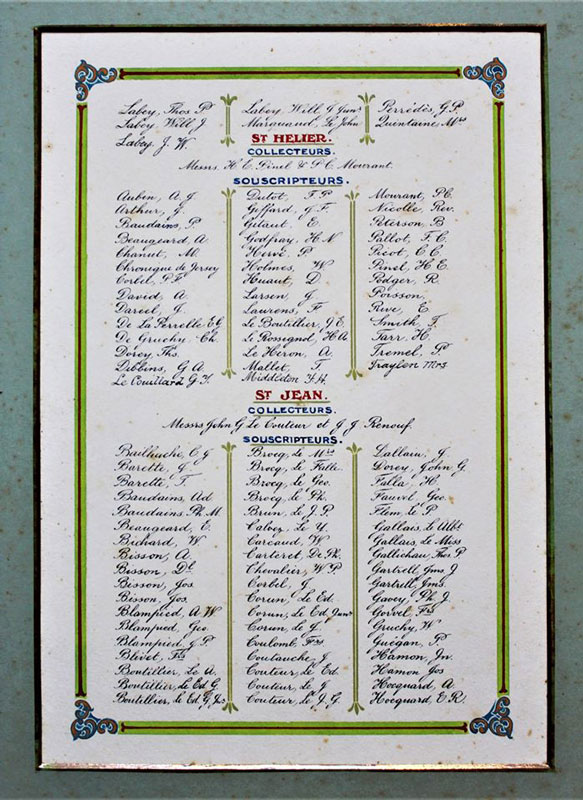 Labey, Thos P
Labey, Will J
Labey, J. W
Labey, Will. G Junr
Marquand, Le John
Perrédès, G. P.
Quintaine, Mrs
ST HELIER.
COLLECTEURS.
Messrs. H. E. Pinel & P. C. Mourant.
SOUSCRIPTEURS.
Aubin, A. J
Arthur, J.
Baudains, P.
Beaugeard, A
Chanut, M
Chronique de Jersey
Corbel, P. F
David, A
Dareel, J.
De La Perrelle, E G
De Gruchy, Ch.
Dorey, Ths.
Dibbins, G. A
Le Couillard G. F.
Dutot, F. P
Giffard, J F.
Gelaut, E.
Godfray, H. N
Hervé, P
Holmes, W
Huaut, D
Larsen, J
Laurens, F
Le Boutillier, J. E.
Le Rossignol, H A
Le Heron, A.
Mallet, T.
Middleton F. H.
Mourant, P.C.
Nicolle, Rev.
Peterson, B
Pallot, F. C.
Picot, C E
Pinel, H. E.
Podger, R
Poisson,
Rive, E
Smith, T.
Tarr, H.
Tremel, P.
Traylen Mrs
ST JEAN.
COLLECTEURS.
Messrs John, G Le Couteur et J. J. Renouf.
SOUSCRIPTEURS.
Bailhache, C J
Barette, J
Barette, T
Baudains, Ad
Baudains, Ph. M
Beaugeard, E
Bichard, W
Bisson, A
Bisson, De
Bisson, Jos
Bisson, Jos.
Blampied, A. W
Blampied, Geo
Blampied, J. P.
Blivet, Frs
Boutillier, Le A.
Boutillier, Le Ed. G.
Boutillier, Le Ed. G, Jnr
Brocq, Le Mrs
Brocq, Le Falle
Brocq, Le Geo.
Brocq, Le Ph.
Brun, Le J. P
Calvez, Le Y.
Carcaud, W
Carteret, De Ph.
Chevalier, W P.
Corbel, J
Cornu, Le Ed.
Cornu, Le Ed. Junr
Cornu, Le J.
Coulomb, Frs
Coutanche, J
Couteur, Le Ed
Couteur, Le J
Couteur, Le J. G.
Lallain, J.
Dorey, John G.
Falla, H.
Fauvel, Geo
Flem, Le P
Gallais, Le Albt
Gallais, Le Miss
Gallichan, Thos P
Gartrell, Jms J
Gartrell, Jms.
Gavey, Ph. J.
Gorvel, Frs
Gruchy, W
Guégan, P
Hamon, Jn.
Hamon Jos
Hocquard, A
Hocquard, E. R.